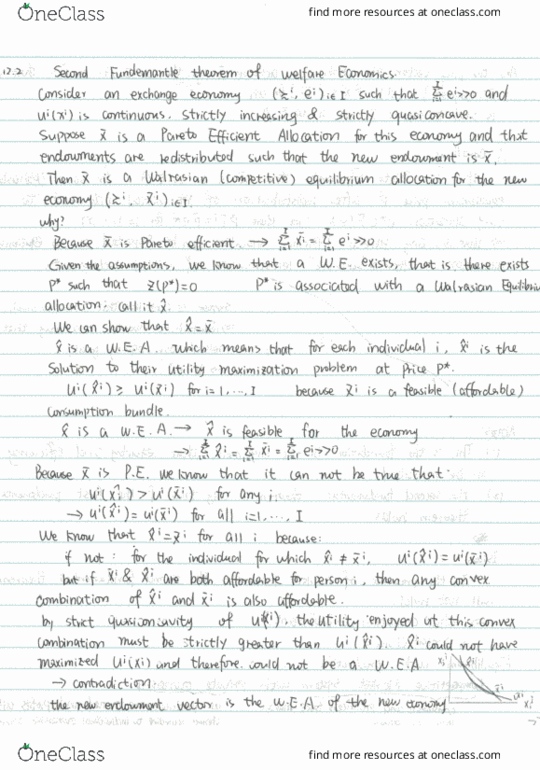 OneClass
find more resources at oneclass.com
12.2 Second Fundemantle theorem of welfare Economics.
Consider an exchange economy (≿ⁱ, eⁱ)i∈I such that Σᴵᵢ₌₁ eⁱ>>0 and
uⁱ(xⁱ) is continuous, strictly increasing & strictly quasiconcave.
Suppose x̄ is a Pareto Efficient Allocation for this economy and that
endowments are redistributed such that the new endowment is x̄.
Then x̄ is a Walrasian (competitive) equilibrium allocation for the new
economy (≿ⁱ, x̄ⁱ)i∈I.
why?
Because x̄ is Pareto efficient. → Σᴵᵢ₌₁ x̄ⁱ = Σᴵᵢ₌₁ eⁱ >>0
Given the assumptions, we know that a W.E. exists, that is there exists
P* such that z(P*)=0 P* is associated with a Walrasian Equilibriu
allocation: call it x̂.
We can show that x̂=x̄
x̂ is a W.E.A. which means that for each individual i, x̂ⁱ is the
solution to their utility maximization problem at price P*.
uⁱ(x̂ⁱ) ≥ uⁱ(x̄ⁱ) for i=1,...,I because x̄ⁱ is a feasible (affordable)
consumption bundle.
x̂ is a W.E.A. → x̂ is feasible for the economy
→ Σᴵᵢ₌₁ x̂ⁱ = Σᴵᵢ₌₁ x̄ⁱ = Σᴵᵢ₌₁ eⁱ>>0
Because x̄ is P.E. we know that it can not be true that:
uⁱ(x̂ⁱ) > uⁱ(x̄ⁱ) for any i
→ uⁱ(x̂ⁱ) = uⁱ(x̄ⁱ) for all i=1,..., I
We know that x̂ⁱ=x̄ⁱ for all i because:
if not: for the individual for which x̂ⁱ ≠ x̄ⁱ, uⁱ(x̂ⁱ)=uⁱ(x̄ⁱ)
but if x̄ⁱ & x̂ⁱ are both affordable for person i, then any convex
combination of x̂ⁱ and x̄ⁱ is also affordable.
by strict quasiconcavity of uⁱ(·), the utility enjoyed at this convex
combination must be strictly greater than uⁱ(x̂ⁱ). x̂ⁱ could not have
maximized uⁱ(xⁱ) and therefore could not be a W.E.A
→ contradiction.
the new endowment vector is the W.E.A. of the new economy
OneClass
find more resources at oneclass.com